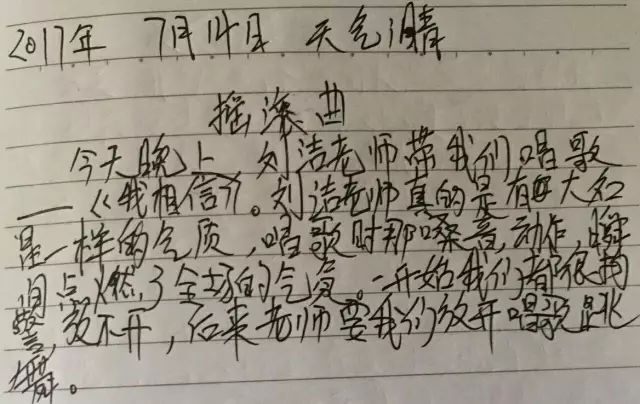 2017年 7月14日 天气晴
摇滚曲
今天晚上，刘洁老师带我们唱歌
——《我相信》。刘洁老师真的是有如大知
星一样的气质，唱歌时那嗓音，动作，瞬
间点燃了全场的气氛。一开始我们都很拘
警，放不开，后来老师要我们放开唱歌跳
舞。